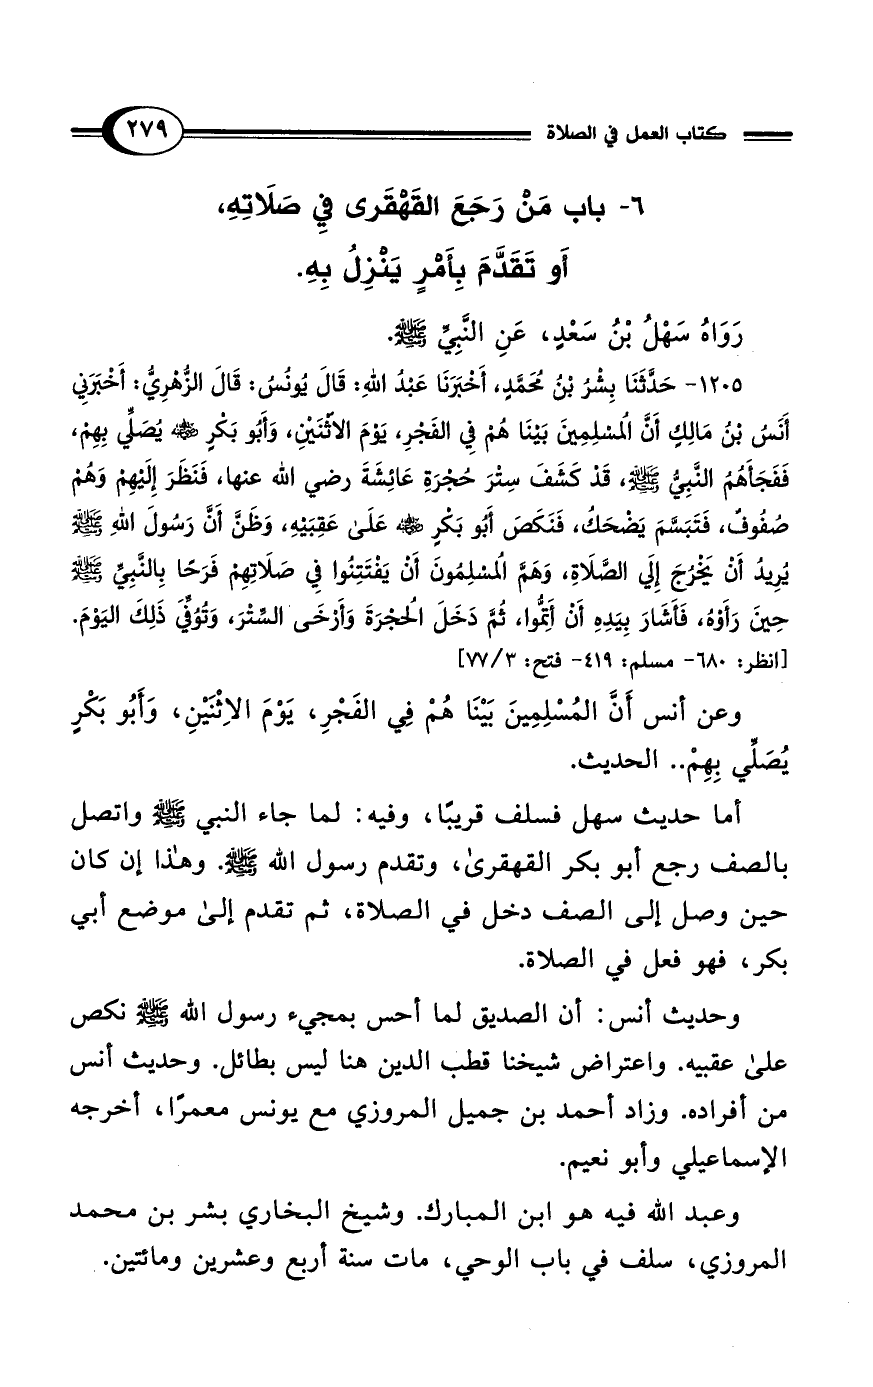 كتاب العمل في الصلاة ٢٧٩
٦- باب مَنْ رَجَعَ القَهْقَرى فِي صَلَاتِهِ،
أَو تَقَدَّمَ بِأَمْرٍ يَنْزِلُ بِهِ.
رَوَاهُ سَهْلُ بْنُ سَعْدٍ، عَنِ النَّبِيِّ ﷺ.
١٢٠٥- حَدَّثَنَا بِشْرُ بْنُ مُحَمَّدٍ، أَخْبَرَنَا عَبْدُ اللهِ: قَالَ يُونُسُ: قَالَ الزُّهْرِيُّ: أَخْبَرَنِي
أَنَسُ بْنُ مَالِكٍ أَنَّ المُسْلِمِينَ بَيْنَا هُمْ فِي الفَجْرِ، يَوْمَ الاثْنَيْنِ، وَأَبُو بَكْرٍ ﵁ يُصَلِّي بِهِمْ،
فَفَجَأَهُمُ النَّبِيُّ ﷺ، قَدْ كَشَفَ سِتْرَ حُجْرَةِ عَائِشَةَ رضي الله عنها، فَنَظَرَ إِلَيْهِمْ وَهُمْ
صُفُوفٌ، فَتَبَسَّمَ يَضْحَكُ، فَنَكَصَ أَبُو بَكْرٍ ﵁ عَلَىٰ عَقِبَيْهِ، وَظَنَّ أَنَّ رَسُولَ اللهِ ﷺ
يُرِيدُ أَنْ يَخْرُجَ إِلَي الصَّلَاةِ، وَهَمَّ المُسْلِمُونَ أَنْ يَفْتَتِنُوا فِي صَلَاتِهِمْ فَرَحًا بِالنَّبِيِّ ﷺ
حِينَ رَأَوْهُ، فَأَشَارَ بِيَدِهِ أَنْ أَتِمُّوا، ثُمَّ دَخَلَ الحُجْرَةَ وَأَرْخَى السِّتْرَ، وَتُوُفِّيَ ذَلِكَ اليَوْمَ.
[انظر: ٦٨٠- مسلم: ٤١٩- فتح: ٧٧/٣]
وعن أنس أَنَّ المُسْلِمِينَ بَيْنَا هُمْ فِي الفَجْرِ، يَوْمَ الاِثْنَيْنِ، وَأَبُو بَكْرٍ
يُصَلِّي بِهِمْ.. الحديث.
أما حديث سهل فسلف قريبًا، وفيه: لما جاء النبي ﷺ واتصل
بالصف رجع أبو بكر القهقرىٰ، وتقدم رسول الله ﷺ. وهذا إن كان
حين وصل إلى الصف دخل في الصلاة، ثم تقدم إلىٰ موضع أبي
بكر، فهو فعل في الصلاة.
وحديث أنس: أن الصديق لما أحس بمجيء رسول الله ﷺ نكص
علىٰ عقبيه. واعتراض شيخنا قطب الدين هنا ليس بطائل. وحديث أنس
من أفراده. وزاد أحمد بن جميل المروزي مع يونس معمرًا، أخرجه
الإسماعيلي وأبو نعيم.
وعبد الله فيه هو ابن المبارك. وشيخ البخاري بشر بن محمد
المروزي، سلف في باب الوحي، مات سنة أربع وعشرين ومائتين.